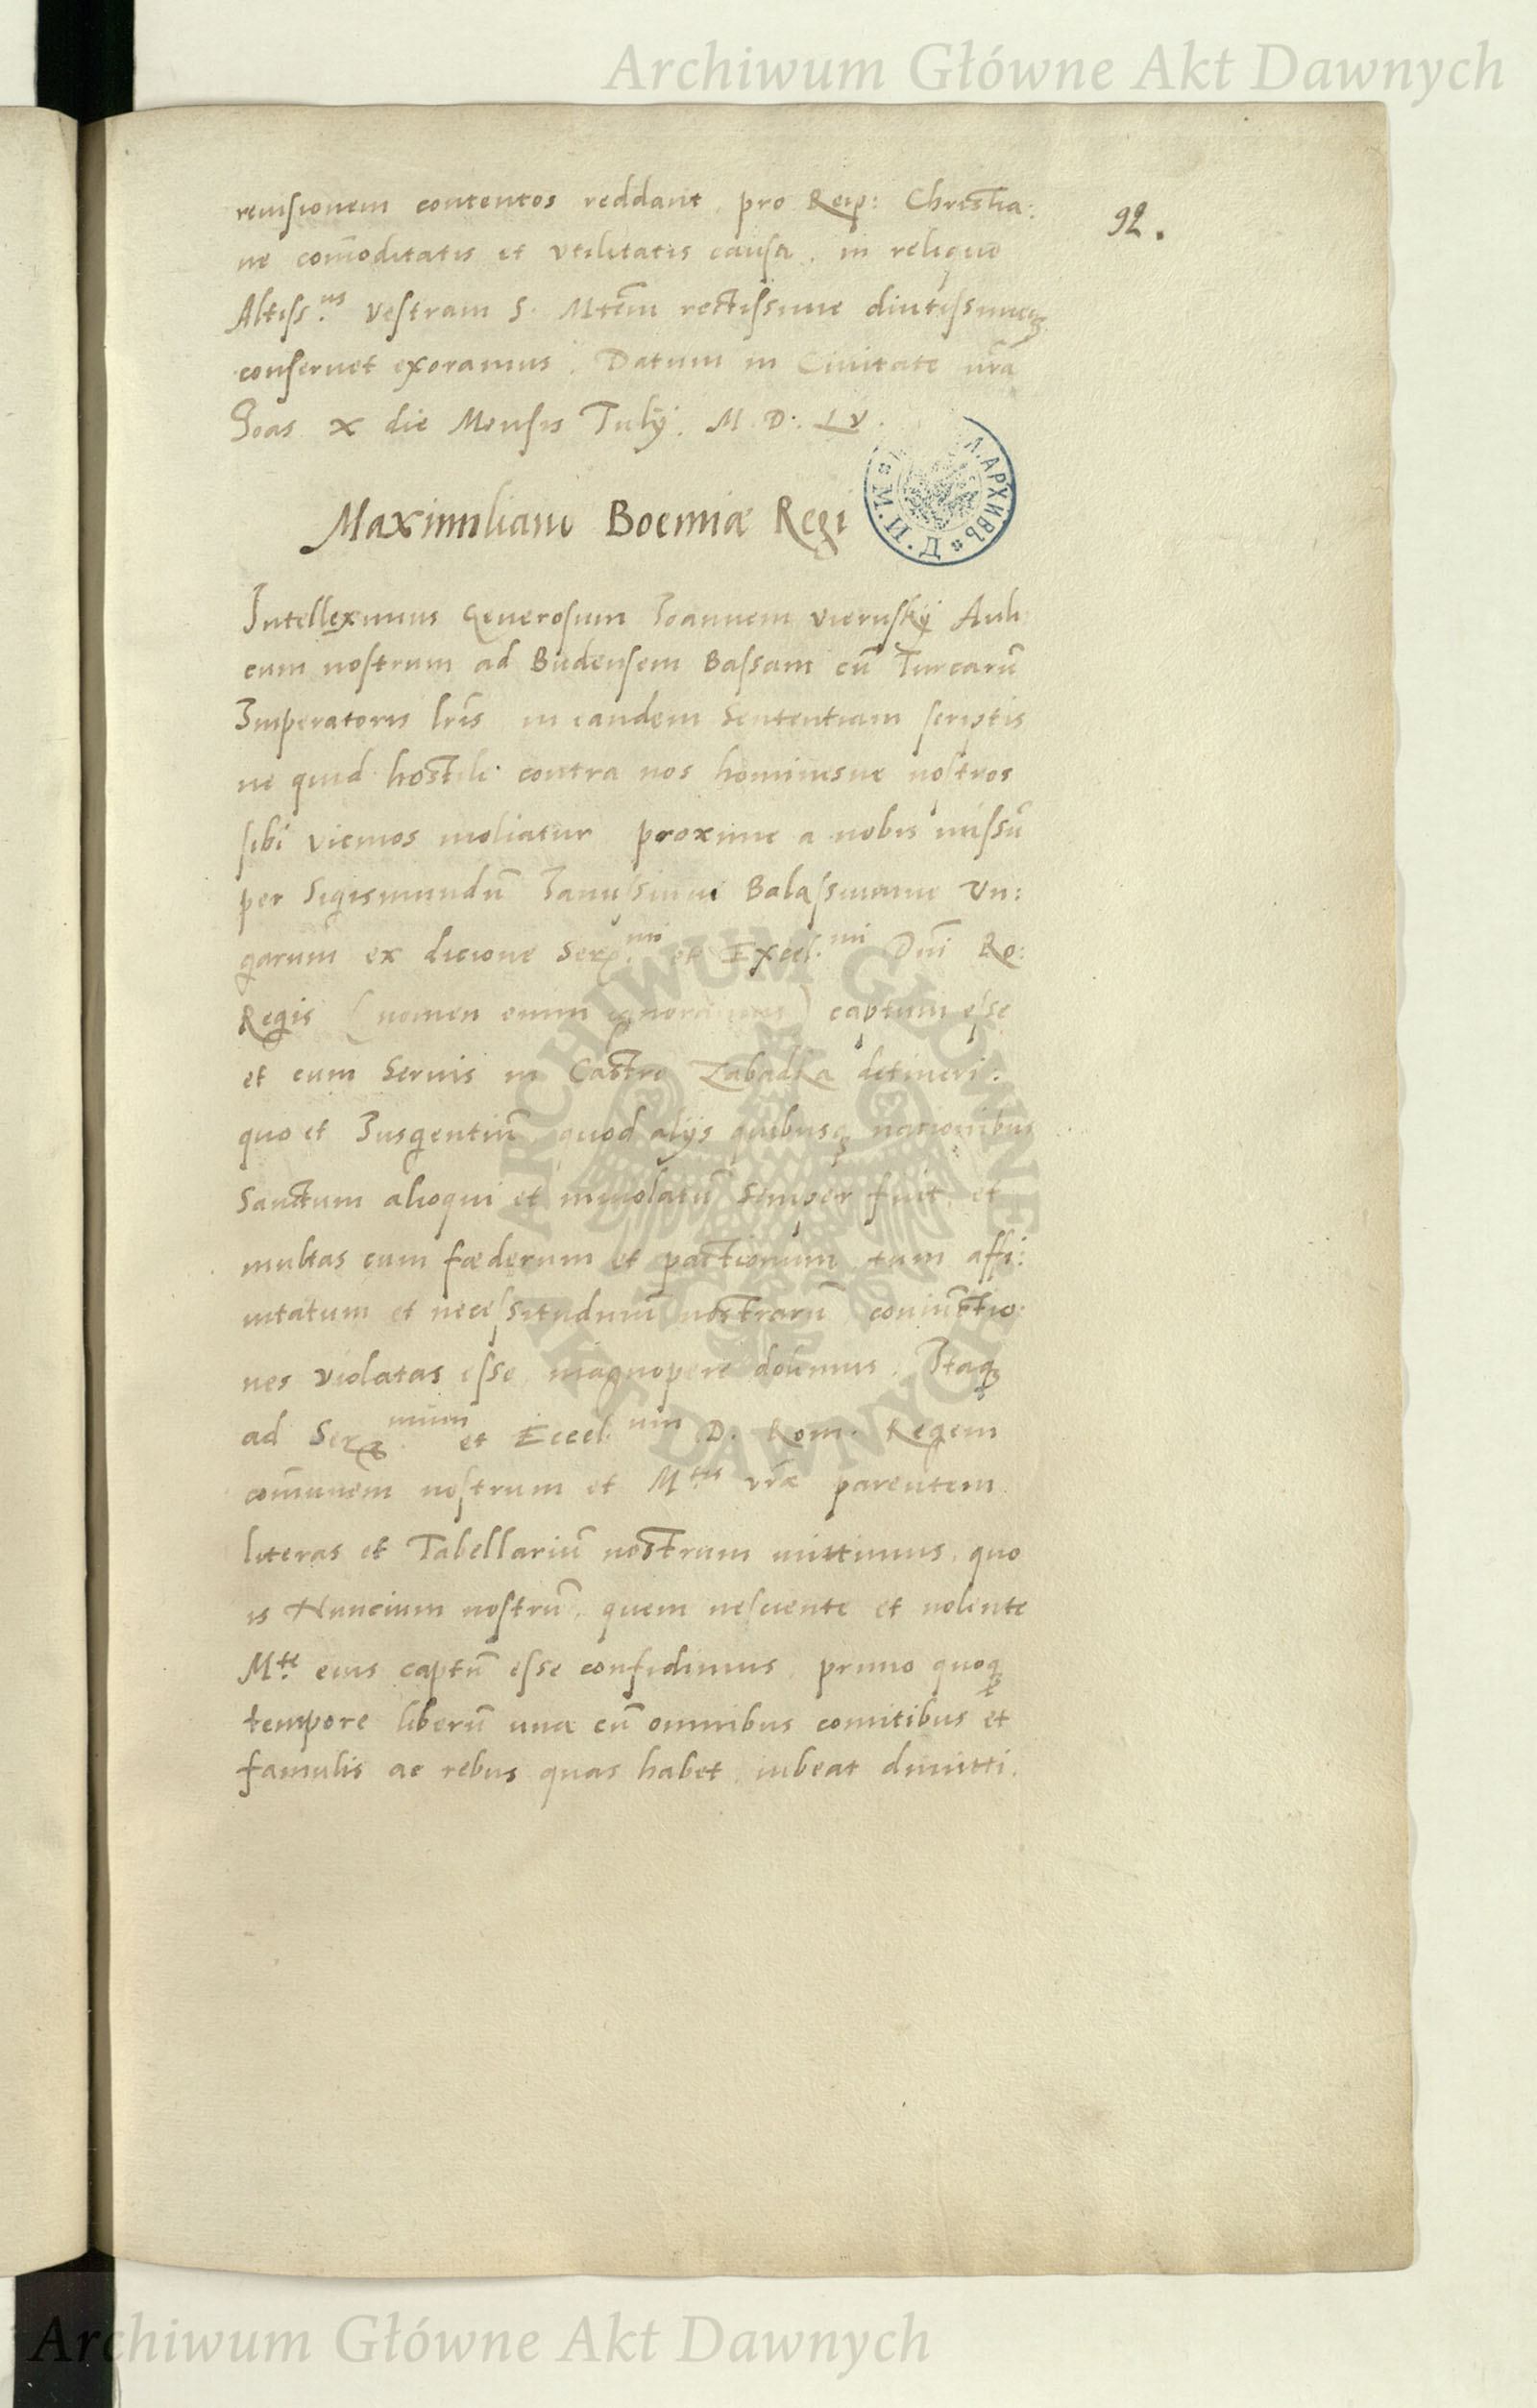 Archiwum Główne Akt Dawnych
92.
remissionem contentos reddant, pro Reip: Christia:
ne com̄oditatis et vtilitatis causa. in reliquo
Altiss.us vestram S. Mtem̄ rectissime diutissimeq;
conseruet exoramus. Datum in Ciuitate nr̄a
Goas x die Mensis Iulij. M. D. LV.
Maximiliano Boemiæ Regi
Д. П. И. Л. АРХИВЪ
Intelleximus Generosum Ioannem Vieruskÿ Auli
cum nostrum ad Budensem Bassam cū Turcarū
Imperatoris lr̄is in eandem sententiam scriptis
ne quid hostile contra nos hominesue nostros
sibi vicinos moliatur proxime a nobis missū
per Sigismundū Balassinum Vn:
garum ex dicione Ser.mi et Excel.mi Dn̄i Ro:
Regis (nomen enim ignoramus) captum esse
et cum seruis in Castro Zabadka detineri.
quo et Iusgentiū quod alijs quibusq; nationibus
Sanctum alioqui et inuiolatū semper fuit, et
multas cum fœderum et pactionum, tum affi:
nitatum et necessitudinū nostrarū coniūctio:
nes violatas esse magnopere dolemus. Itaq;
ad Ser.mum et Excel.um D. Rom. Regem
com̄unem nostrum et M.tis vr̄æ parentem
literas et Tabellariū nostrum mittimus, quo
is Nuncium nostrū, quem nesciente et nolente
M.te eius captū esse confidimus, primo quoq;
tempore liberū una cū omnibus comitibus et
famulis ac rebus quas habet iubeat dimitti.
ARCHIWUM GŁÓWNE AKT DAWNYCH
Archiwum Główne Akt Dawnych